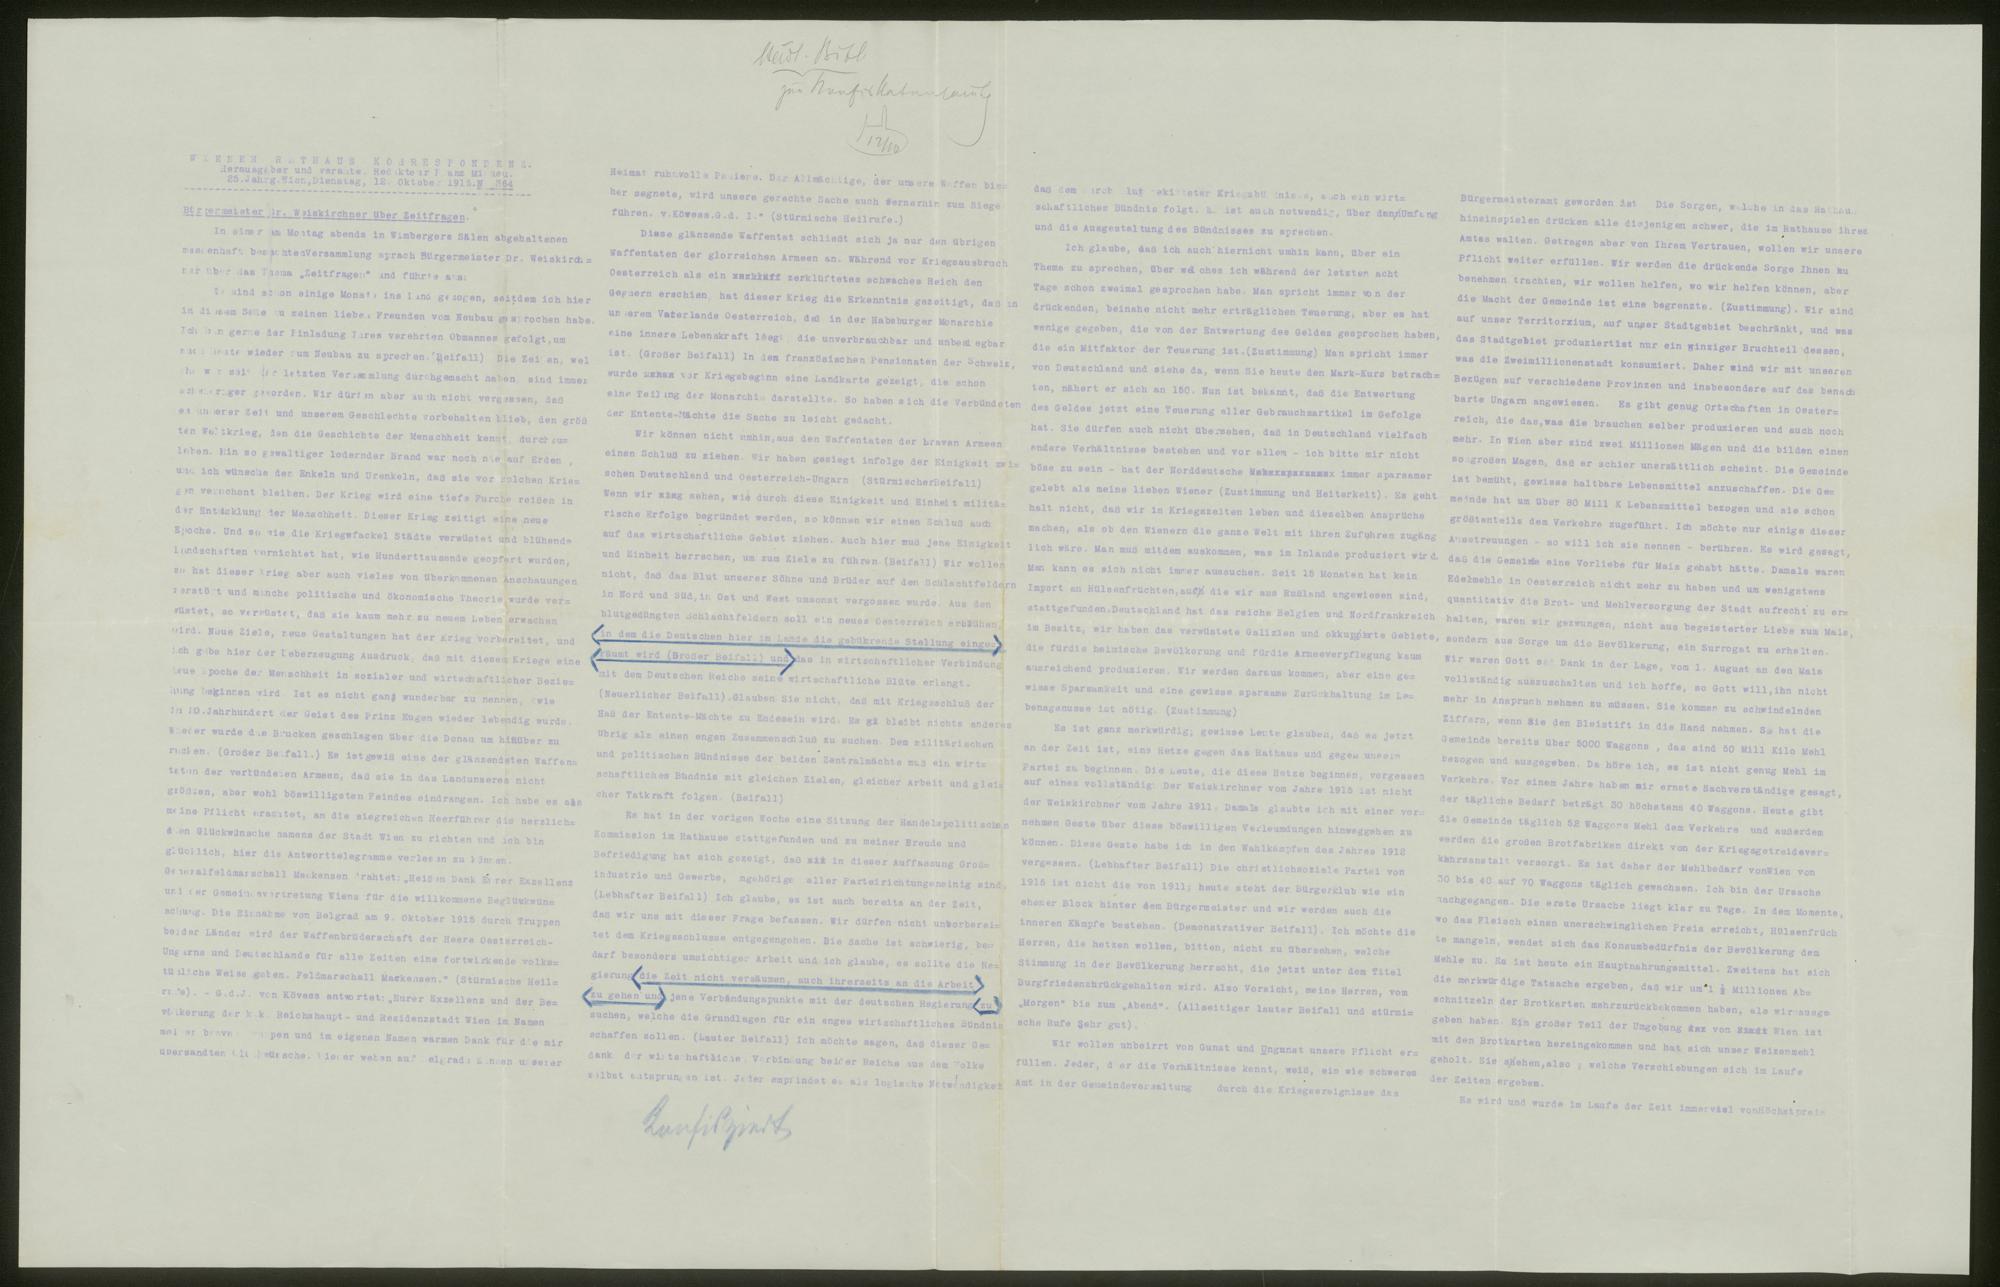 Städt. Bibl.
zur Konfiskatensamlg
12/10
WIENER RATHAUS KORRESPONDENZ.
Herausgeber und verantw. Redakteur Franz Micheu.
25. Jahrg. Wien, Dienstag, 12. Oktober 1915. N 364
Bürgermeister Dr. Weiskirchner über Zeitfragen.
In einer am Montag abends in Wimbergers Sälen abgehaltenen
massenhaft besuchten Versammlung sprach Bürgermeister Dr. Weiskirch=
ner über das Thema „Zeitfragen" und führte aus:
Es sind schon einige Monate ins Land gezogen, seitdem ich hier
in diesem Saale zu meinen lieben Freunden vom Neubau gesprochen habe.
Ich bin gerne der Einladung Ihres verehrten Obmannes gefolgt, um
auch heute wieder zum Neubau zu sprechen. (Beifall) Die Zeiten, wel
che wir seit der letzten Versammlung durchgemacht haben, sind immer
schwieriger geworden. Wir dürfen aber auch nicht vergessen, daß
es unserer Zeit und unserem Geschlechte vorbehalten blieb, den größ
ten Weltkrieg, den die Geschichte der Menschheit kennt, durchzu=
leben. Ein so gewaltiger lodernder Brand war noch nie auf Erden ,
und ich wünsche der Enkeln und Urenkeln, daß sie vor solchen Krie=
gen verschont bleiben. Der Krieg wird eine tiefe Furche reißen in
der Entwicklung der Menschheit. Dieser Krieg zeitigt eine neue
Epoche. Und so wie die Kriegsfackel Städte verwüstet und blühende
Landschaften vernichtet hat, wie Hunderttausende geopfert wurden,
so hat dieser Krieg aber auch vieles von überkommenen Anschauungen
zerstört und manche politische und ökonomische Theorie wurde ver=
wüstet, so verwüstet, daß sie kaum mehr zu neuem Leben erwachen
wird. Neue Ziele, neue Gestaltungen hat der Krieg vorbereitet, und
ich gebe hier der Ueberzeugung Ausdruck, daß mit diesem Kriege eine
neue Epoche der Menschheit in sozialer und wirtschaftlicher Bezie=
hung beginnen wird. Ist es nicht ganz wunderbar zu nennen, wie
im 20.Jahrhundert der Geist des Prinz Eugen wieder lebendig wurde.
Wieder wurde die Brucken geschlagen über die Donau um hinüber zu
rucken. (Großer Beifall.) Es ist gewiß eine der glänzendsten Waffen=
taten der verbündeten Armeen, daß sie in das Land unseres nicht
größten, aber wohl böswilligsten Feindes eindrangen. Ich habe es als
meine Pflicht erachtet, an die siegreichen Heerführer die herzlich=
sten Glückwünsche namens der Stadt Wien zu richten und ich bin
glücklich, hier die Antworttelegramme verlesen zu können.
Generalfeldmarschall Mackensen drahtet: „Heißen Dank Eurer Exzellenz
und der Gemeindevertretung Wiens für die willkommene Beglückwün=
schung. Die Einnahme von Belgrad am 9. Oktober 1915 durch Truppen
beider Länder wird der Waffenbrüderschaft der Heere Oesterreich-
Ungarns und Deutschlands für alle Zeiten eine fortwirkende volks=
tümliche Weise geben. Feldmarschall Mackensen." (Stürmische Heil=
rufe). - G.d.I. von Kövess antwortet: „Eurer Exzellenz und der Be=
völkerung der k.k. Reichshaupt- und Residenzstadt Wien im Namen
meiner braven Truppen und im eigenen Namen warmen Dank für die mir
übersandten Glückwünsche. Wieder weben auf Belgrads Zinnen unserer
Heimat ruhmvolle Paniere. Der Allmächtige, der unsere Waffen bis=
her segnete, wird unsere gerechte Sache auch fernerhin zum Siege
führen. v.Kövess.G.d. I." (Stürmische Heilrufe.)
Diese glänzende Waffentat schließt sich ja nur den übrigen
Waffentaten der glorreichen Armeen an. Während vor Kriegsausbruch
Oesterreich als ein zerklüftetes schwaches Reich den
Gegnern erschien, hat dieser Krieg die Erkenntnis gezeitigt, daß in
unserem Vaterlande Oesterreich, daß in der Habsburger Monarchie
eine innere Lebenskraft liegt, die unverbrauchbar und unbesiegbar
ist. (Großer Beifall) In den französischen Pensionaten der Schweiz,
wurde vor Kriegsbeginn eine Landkarte gezeigt, die schon
eine Teilung der Monarchie darstellte. So haben sich die Verbündeten
der Entente-Mächte die Sache zu leicht gedacht.
Wir können nicht umhin, aus den Waffentaten der braven Armeen
einen Schluß zu ziehen. Wir haben gesiegt infolge der Einigkeit zwi=
schen Deutschland und Oesterreich-Ungarn (Stürmischer Beifall)
Wenn wir sehen, wie durch diese Einigkeit und Einheit militä=
rische Erfolge begründet werden, so können wir einen Schluß auch
auf das wirtschaftliche Gebiet ziehen. Auch hier muß jene Einigkeit
und Einheit herrschen, um zum Ziele zu führen. (Beifall) Wir wollen
nicht, daß das Blut unserer Söhne und Brüder auf den Schlachtfeldern
in Nord und Süd, in Ost und West umsonst vergossen wurde. Aus den
blutgedüngten Schlachtfeldern soll ein neues Oesterreich erblühen,
in dem die Deutschen hier im Lande die gebührende Stellung einge=
räumt wird (Großer Beifall) und das in wirtschaftlicher Verbindung
mit dem Deutschen Reiche seine wirtschaftliche Blüte erlangt.
(Neuerlicher Beifall). Glauben Sie nicht, daß mit Kriegsschluß der
Haß der Entente-Mächte zu Ende sein wird. Es bleibt nichts anderes
übrig als einen engen Zusammenschluß zu suchen. Dem militärischen
und politischen Bündnisse der beiden Zentralmächte muß ein wirt=
schaftliches Bündnis mit gleichen Zielen, gleicher Arbeit und glei=
cher Tatkraft folgen. (Beifall)
Es hat in der vorigen Woche eine Sitzung der Handelspolitischen
Kommission im Rathause stattgefunden und zu meiner Freude und
Befriedigung hat sich gezeigt, daß in dieser Auffassung Groß=
industrie und Gewerbe, Angehörige aller Parteirichtungen einig sind.
(Lebhafter Beifall) Ich glaube, es ist auch bereits an der Zeit,
daß wir uns mit dieser Frage befassen. Wir dürfen nicht unvorberei=
tet dem Kriegsschlusse entgegengehen. Die Sache ist schwierig, be=
darf besonders umsichtiger Arbeit und ich glaube, es sollte die Re=
gierung die Zeit nicht versäumen, auch ihrerseits an die Arbeit
zu gehen und jene Verbindungspunkte mit der deutschen Regierung zu
suchen, welche die Grundlagen für ein enges wirtschaftliches Bündnis
schaffen sollen. (Lauter Beifall) Ich möchte sagen, daß dieser Ge=
danke der wirtschaftlichen Verbindung beider Reiche aus dem Volke
selbst entsprungen ist. Jeder empfindet es als logische Notwendigkeit
Konfisziert
daß dem durch Blut gekitteter Kriegsbündnisse, auch ein wirt=
schaftliches Bündnis folgt. Es ist auch notwendig, über den Umfang
und die Ausgestaltung des Bündnisses zu sprechen.
Ich glaube, daß ich auch hier nicht umhin kann, über ein
Thema zu sprechen, über welches ich während der letzten acht
Tage schon zweimal gesprochen habe. Man spricht immer von der
drückenden, beinahe nicht mehr erträglichen Teuerung, aber es hat
wenige gegeben, die von der Entwertung des Geldes gesprochen haben,
die ein Mitfaktor der Teuerung ist. (Zustimmung) Man spricht immer
von Deutschland und siehe da, wenn Sie heute den Mark-Kurs betrach=
ten, nähert er sich an 150. Nun ist bekannt, daß die Entwertung
des Geldes jetzt eine Teuerung aller Gebrauchsartikel im Gefolge
hat. Sie dürfen auch nicht übersehen, daß in Deutschland vielfach
andere Verhältnisse bestehen und vor allem - ich bitte mir nicht
böse zu sein - hat der Norddeutsche immer sparsamer
gelebt als meine lieben Wiener (Zustimmung und Heiterkeit). Es geht
halt nicht, daß wir in Kriegszeiten leben und dieselben Ansprüche
machen, als ob den Wienern die ganze Welt mit ihren Zufuhren zugäng
lich wäre. Man muß mit dem auskommen, was im Inlande produziert wird.
Man kann es sich nicht immer aussuchen. Seit 15 Monaten hat kein
Import an Hülsenfrüchten, auf die wir aus Rußland angewiesen sind,
stattgefunden. Deutschland hat das reiche Belgien und Nordfrankreich
im Besitz, wir haben das verwüstete Galizien und okkupierte Gebiete,
die für die heimische Bevölkerung und für die Armeeverpflegung kaum
ausreichend produzieren. Wir werden daraus kommen, aber eine ge=
wisse Sparsamkeit und eine gewisse sparsame Zurückhaltung im Le=
bensgenusse ist nötig. (Zustimmung)
Es ist ganz merkwürdig; gewisse Leute glauben, daß es jetzt
an der Zeit ist, eine Hetze gegen das Rathaus und gegen unsere
Partei zu beginnen. Die Leute, die diese Hetze beginnen, vergessen
auf eines vollständig: Der Weiskirchner vom Jahre 1915 ist nicht
der Weiskirchner vom Jahre 1911. Damals glaubte ich mit einer vor=
nehmen Geste über diese böswilligen Verleumdungen hinweggehen zu
können. Diese Geste habe ich in den Wahlkämpfen des Jahres 1912
vergessen. (Lebhafter Beifall) Die christlichsoziale Partei von
1915 ist nicht die von 1911; heute steht der Bürgerklub wie ein
eherner Block hinter dem Bürgermeister und wir werden auch die
inneren Kämpfe bestehen. (Demonstrativer Beifall). Ich möchte die
Herren, die hetzen wollen, bitten, nicht zu übersehen, welche
Stimmung in der Bevölkerung herrscht, die jetzt unter dem Titel
Burgfrieden zurückgehalten wird. Also Vorsicht, meine Herren, vom
„Morgen" bis zum „Abend". (Allseitiger lauter Beifall und stürmi=
sche Rufe Sehr gut).
Wir wollen unbeirrt von Gunst und Ungunst unsere Pflicht er=
füllen. Jeder, der die Verhältnisse kennt, weiß, ein wie schweres
Amt in der Gemeindeverwaltung durch die Kriegsereignisse das
Bürgermeisteramt geworden ist Die Sorgen, welche in das Rathaus
hineinspielen drücken alle diejenigen schwer, die im Rathause ihres
Amtes walten. Getragen aber von Ihrem Vertrauen, wollen wir unsere
Pflicht weiter erfüllen. Wir werden die drückende Sorge Ihnen zu
benehmen trachten, wir wollen helfen, wo wir helfen können, aber
die Macht der Gemeinde ist eine begrenzte. (Zustimmung). Wir sind
auf unser Territorium, auf unser Stadtgebiet beschränkt, und was
das Stadtgebiet produziert ist nur ein winziger Bruchteil dessen,
was die Zweimillionenstadt konsumiert. Daher sind wir mit unseren
Bezügen auf verschiedene Provinzen und insbesondere auf das benach
barte Ungarn angewiesen. Es gibt genug Ortschaften in Oester=
reich, die das, was sie brauchen selber produzieren und auch noch
mehr. In Wien aber sind zwei Millionen Mägen und die bilden einen
so großen Magen, daß er schier unersättlich scheint. Die Gemeinde
ist bemüht, gewisse haltbare Lebensmittel anzuschaffen. Die Ge=
meinde hat um über 80 Mill K Lebensmittel bezogen und sie schon
größtenteils dem Verkehre zugeführt. Ich möchte nur einige dieser
Ausstreuungen - so will ich sie nennen - berühren. Es wird gesagt,
daß die Gemeinde eine Vorliebe für Mais gehabt hätte. Damals waren
Edelmehle in Oesterreich nicht mehr zu haben und um wenigstens
quantitativ die Brot- und Mehlversorgung der Stadt aufrecht zu er=
halten, waren wir gezwungen, nicht aus begeisterter Liebe zum Mais,
sondern aus Sorge um die Bevölkerung, ein Surrogat zu erhalten.
Wir waren Gott sei Dank in der Lage, vom 1. August an den Mais
vollständig auszuschalten und ich hoffe, so Gott will, ihn nicht
mehr in Anspruch nehmen zu müssen. Sie kommen zu schwindelnden
Ziffern, wenn Sie den Bleistift in die Hand nehmen. So hat die
Gemeinde bereits über 5000 Waggons , das sind 50 Mill Kilo Mehl
bezogen und ausgegeben. Da höre ich, es ist nicht genug Mehl im
Verkehre. Vor einem Jahre haben mir ernste Sachverständige gesagt,
der tägliche Bedarf beträgt 30 höchstens 40 Waggons. Heute gibt
die Gemeinde täglich 52 Waggons Mehl dem Verkehre und außerdem
werden die großen Brotfabriken direkt von der Kriegsgetreidever=
kehrsanstalt versorgt. Es ist daher der Mehlbedarf von Wien von
30 bis 40 auf 70 Waggons täglich gewachsen. Ich bin der Ursache
nachgegangen. Die erste Ursache liegt klar zu Tage. In dem Momente,
wo das Fleisch einen unerschwinglichen Preis erreicht, Hülsenfrüch
te mangeln, wendet sich das Konsumbedürfnis der Bevölkerung dem
Mehle zu. Es ist heute ein Hauptnahrungsmittel. Zweitens hat sich
die merkwürdige Tatsache ergeben, daß wir um 1 ½ Millionen Ab=
schnitzeln der Brotkarten mehr zurückbekommen haben, als wir ausge=
geben haben. Ein großer Teil der Umgebung von Wien ist
mit den Brotkarten hereingekommen und hat sich unser Weizenmehl
geholt. Sie sehen, also , welche Verschiebungen sich im Laufe
der Zeiten ergeben.
Es wird und wurde im Laufe der Zeit immer viel von Höchstpreis